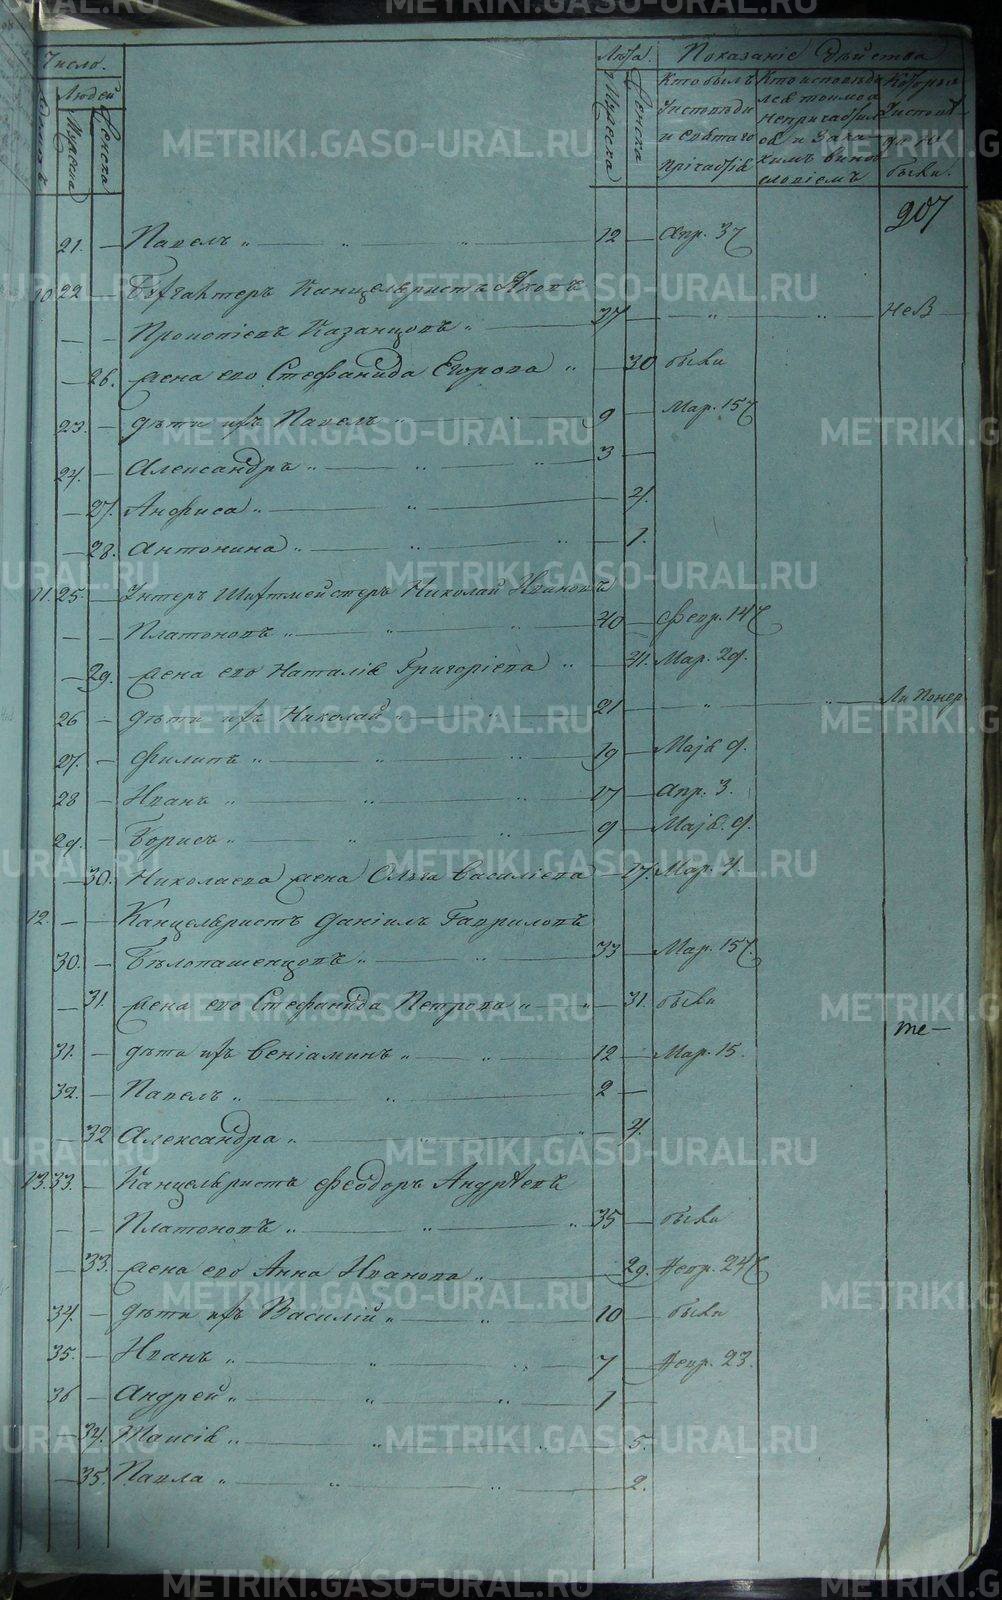 Число.
Лѣта.
Показаніе дѣйства
Людей
Мужеска
Женска
Мужеска
Женска
Кто былъ
Исповѣди
и Святаго
Которыя
были.
207
21. — Павелъ „ — „ — „ — 12 — Апр. 3
10. 22 — Бухгалтеръ Канцеляристъ Яковъ
— — Прокопіевъ Казанцовъ „ — 37 — „ — „ — НеВ
— 26. жена его Стефанида Егорова „ — 30 были
23. — дѣти ихъ Павелъ „ — „ — 9 — Мар. 15
24. — Александръ „ — „ — „ — 3 —
— 27. Анфиса „ — „ — 4.
— 28. Антонина „ — „ — „ — 1.
11. 25 — Унтеръ Шихтмейстеръ Николай Ивановъ
— — Платоновъ „ — „ — „ — 40 — Февр. 14
— 29. жена его Наталія Григоріева „ — 41. Мар. 29.
26 — дѣти ихъ Николай „ — „ — 21 — „ — „ —
27. — Филипъ „ — „ — „ — 19 — Маія 9.
28 — Иванъ „ — „ — „ — 17 — Апр. 3.
29. — Борисъ „ — „ — „ — 9 — Маія. 9.
— 30. Николаева жена Ольга Василіева — 17. Мар. 4.
12. — — Канцеляристъ Даніилъ Гавриловъ
30. — Бѣлопашенцовъ „ — „ — 33 — Мар. 15
— 31. жена его Стефанида Петрова „ — „ — 31. были
31. — дѣти ихъ Веніаминъ „ — „ — 12 — Мар. 15.
те —
32. — Павелъ „ — „ — 2 —
— 32 Александра „ — „ — „ — 4.
13. 33. — Канцеляристъ Феодоръ Андреевъ
— — Платоновъ „ — „ — „ — 35 — были
— 33. жена его Анна Иванова „ — 29. Февр. 24
34. — дѣти ихъ Василій „ — „ — 10 — были
35. — Иванъ „ — „ — „ — 7 — Февр. 23.
36 — Андрей „ — „ — „ — 1 —
— 34. Таисія „ — „ — „ — 5.
— 35. Павла „ — „ — „ — 2.
METRIKI.GASO-URAL.RU